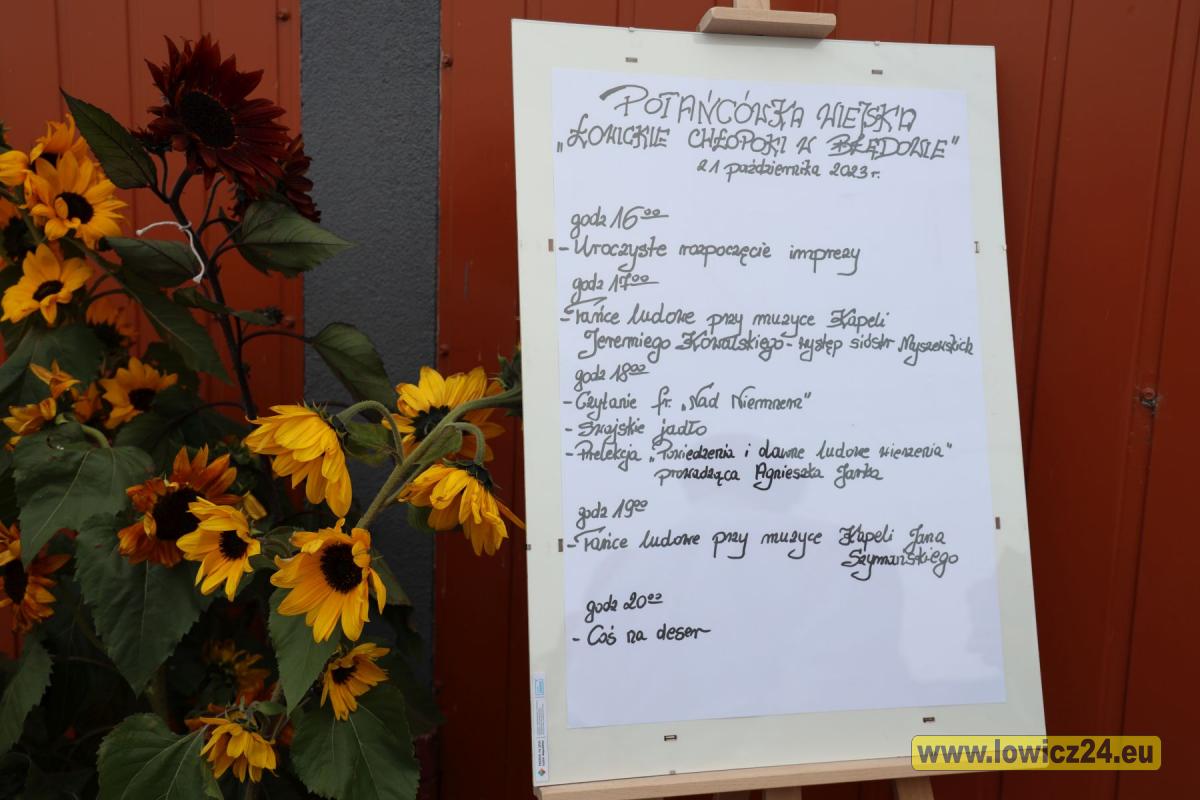 POTAŃCÓWKA WIEJSKA
„ŁOWICKIE CHŁOPOKI W BŁĘDOWIE"
21 października 2023 r.
godz 16⁰⁰
- Uroczyste rozpoczęcie imprezy
godz 17⁰⁰
- Tańce ludowe przy muzyce Kapeli
Jeremiego Kowalskiego - występ sióstr Myszewskich
godz 18⁰⁰
- Czytanie fr. „Nad Niemnem"
- Swojskie jadło
- Prelekcja „Powiedzenia i dawne ludowe wierzenia"
prowadząca Agnieszka Jarka
godz 19⁰⁰
- Tańce ludowe przy muzyce Kapeli Jana
Szymańskiego
godz 20⁰⁰
- Coś na deser
www.lowicz24.eu